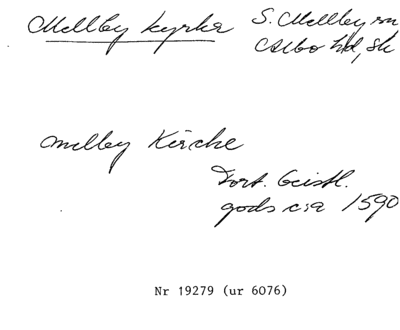 Mellby kyrka S. Mellby sn
Albo hd, Sk
Mellby Kirche
Fort. Geistl.
gods c:a 1590
Nr 19279 (ur 6076)